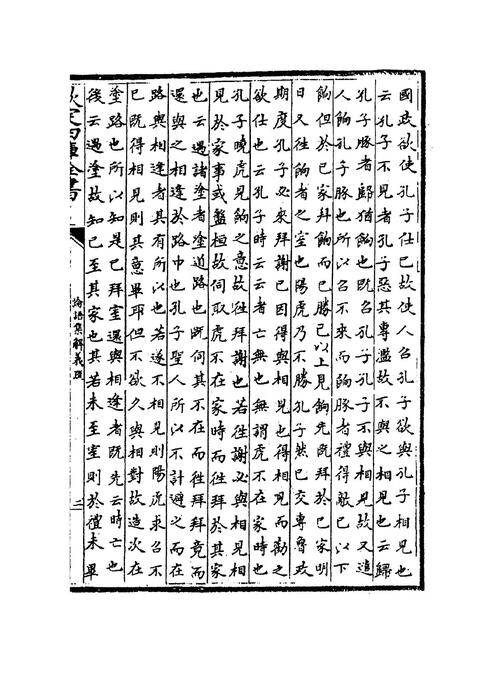 國政欲使孔子仕已故使人召孔子欲與孔子相見也
云孔子不見者孔子惡其專濫故不與之相見也云歸
孔子豚者歸猶餉也既召孔子孔子不與相見故又遣
人餉孔子豚也所以召不來而餉豚者禮得敵已以下
餉但於已家拜餉而已勝已以上見餉先既拜於已家明
日又往餉者之室也陽虎乃不勝孔子然已交專魯政
期度孔子必來拜謝已因得與相見也得相見而勸之
欲仕也云孔子時云云者亡無也無謂虎不在家時也
孔子曉虎見餉之意故往拜謝也若往謝必與相見相
見於家事或盤桓故伺取虎不在家時而往拜於其家
也云遇諸塗者塗道路也既伺其不在而往拜拜竟而
還與之相逢於路中也孔子聖人所以不計避之而在
路與相逢者其有所以也若遂不相見則陽虎求召不
已既得相見則其意畢耳但不欲久與相對故造次在
塗路也所以知是已拜室還與相逢者既先云時亡也
後云遇塗故知已至其家也其若未至室則於禮未畢
欽定四庫全書
論語集解義疏
三